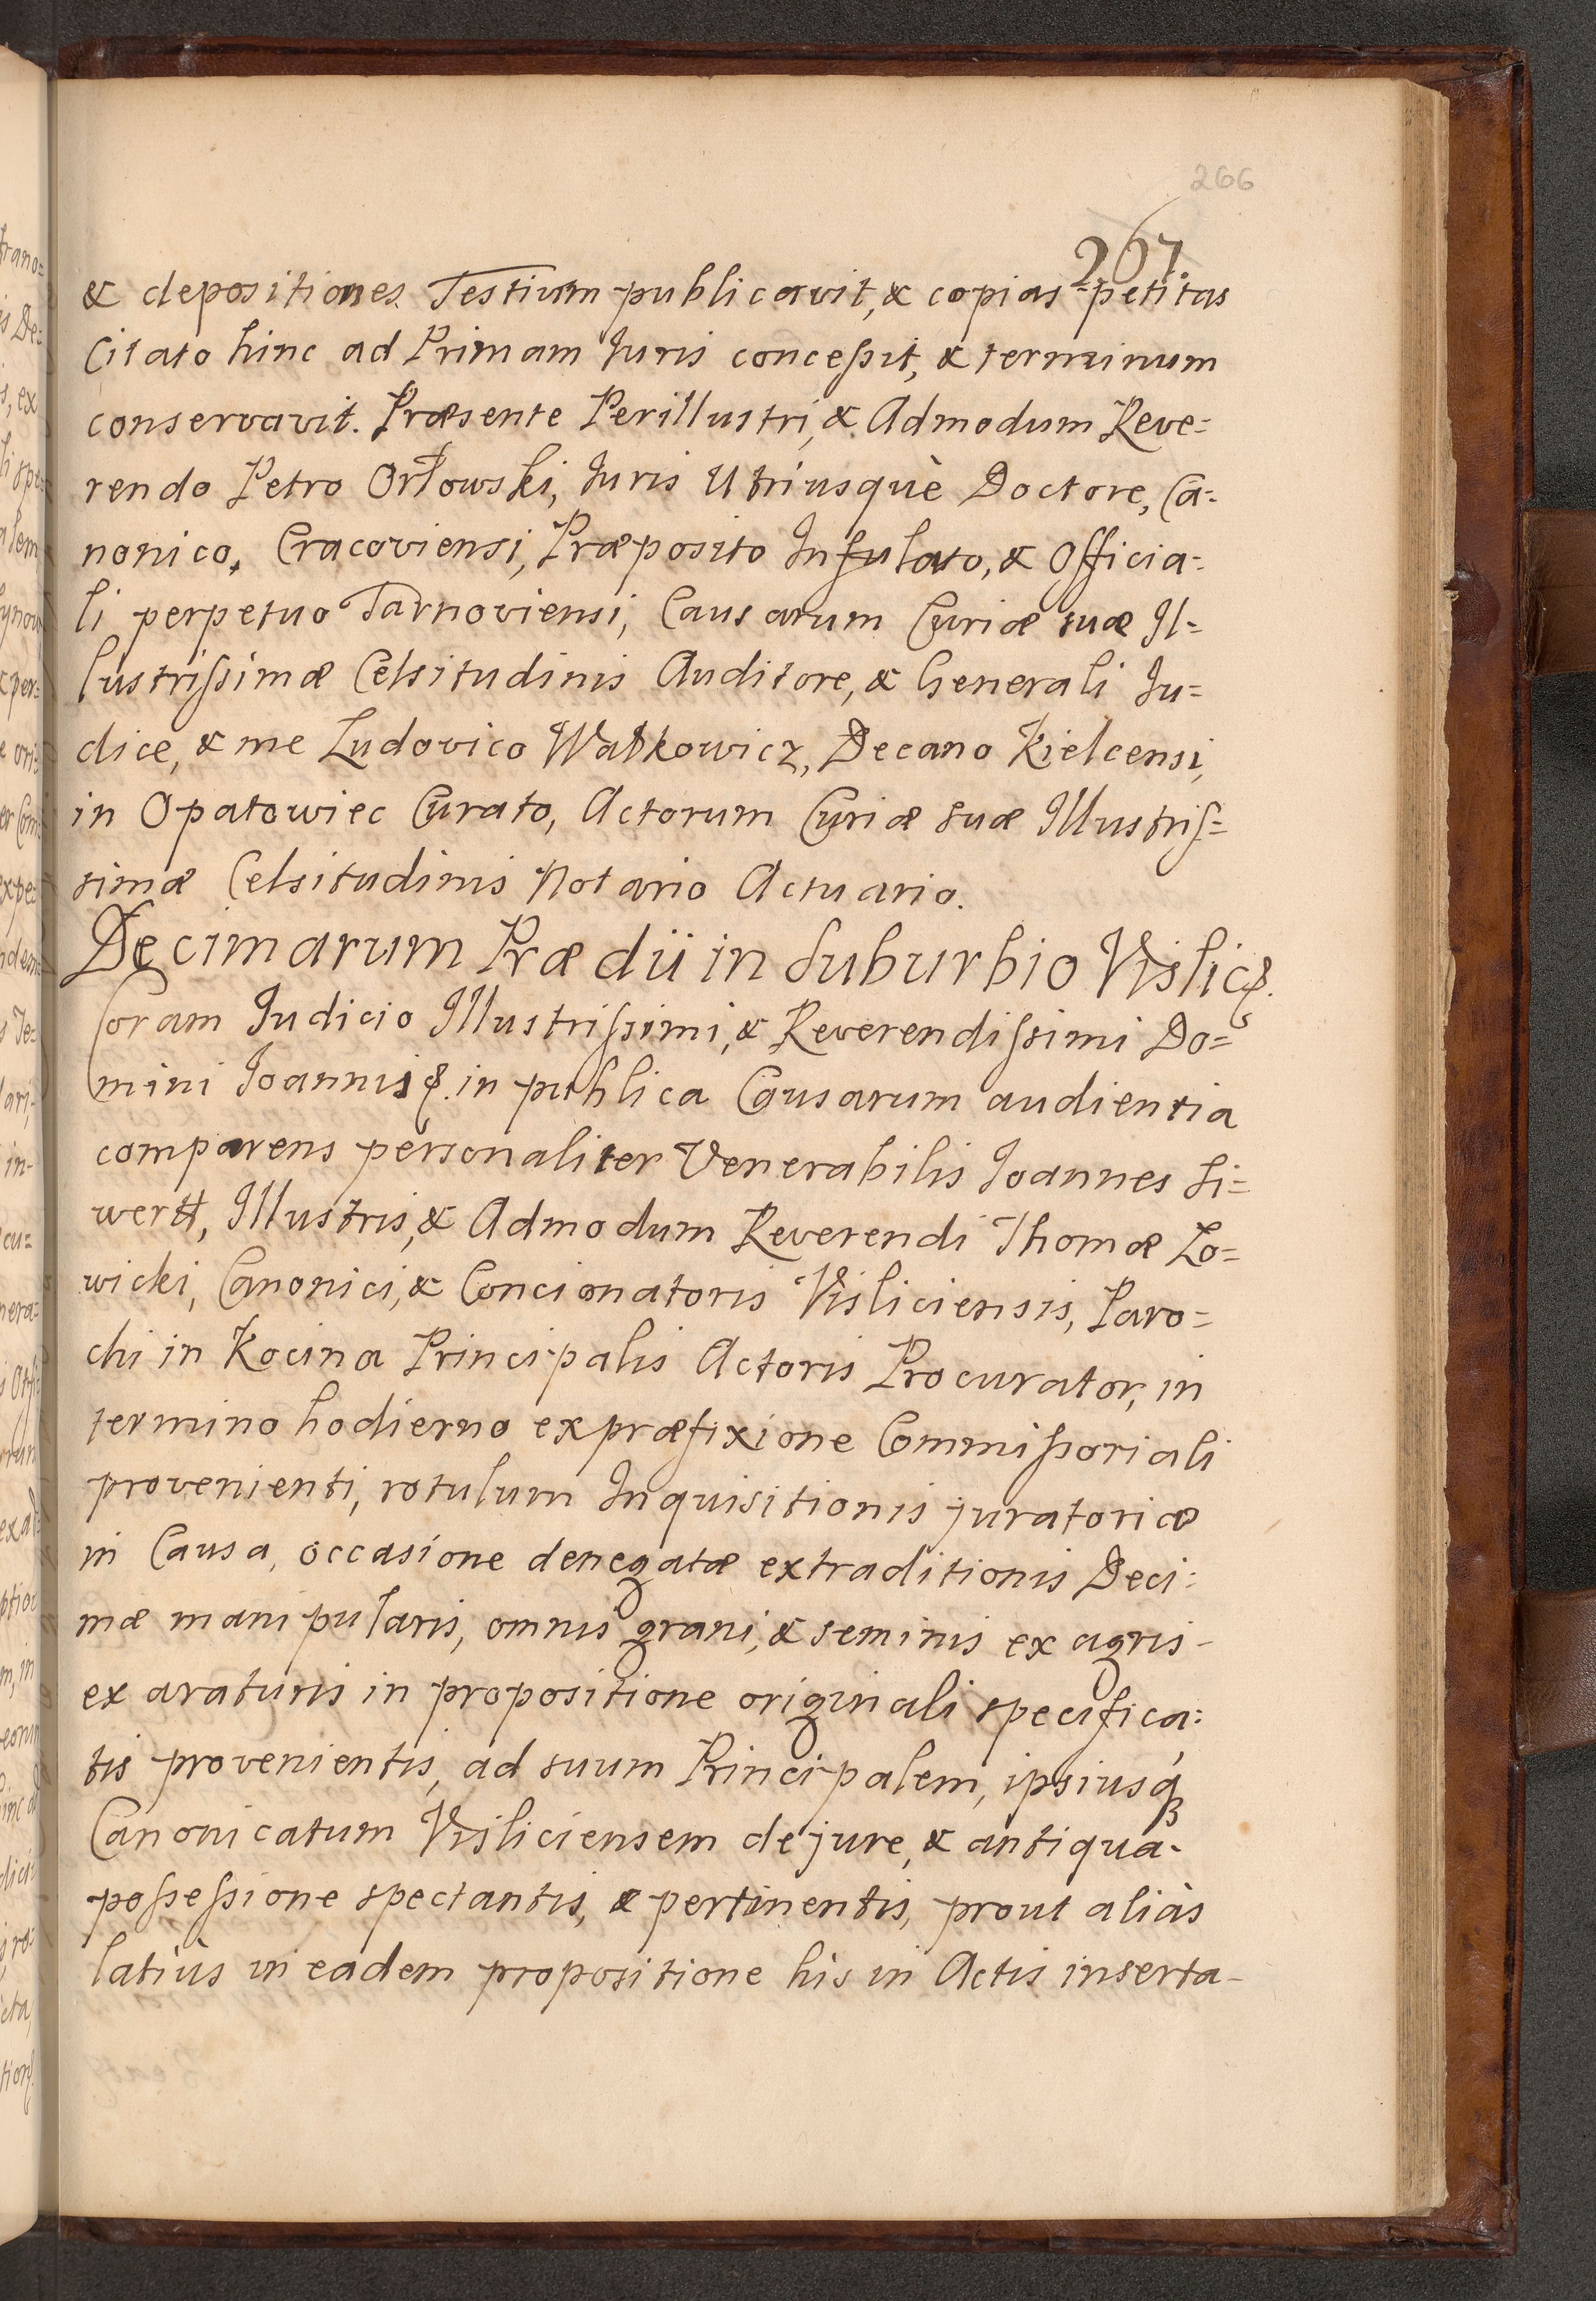 266
267.
& depositiones Testium publicavit, & copias petitas
Citato hinc ad Primam Juris conceßit, & terminum
conservavit. Præsente Perillustri, & Admodum Reve=
rendo Petro Orłowski, Juris Utriusquè Doctore, Ca=
nonico, Cracoviensi, Præposito Infulato, & Officia=
li perpetuo Tarnoviensi, Causarum Curiæ suæ Il=
lustrißimæ Celsitudinis Auditore, & Generali Ju=
dice, & me Ludovico Wałkowicz, Decano Kielcensi,
in Opatowiec Curato, Actorum Curiæ suæ Illustriſ=
simæ Celsitudinis Notario Actuario.
Decimarum Prædii in Suburbio Vislic&.
Coram Judicio Illustrißimi, & Reverendißimi Do=
mini Joannis &. in publica Causarum audientia
comparens personaliter Venerabilis Joannes Si=
wertt, Illustris, & Admodum Reverendi Thomæ Zo=
wicki, Canonici, & Concionatoris Visliciensis, Paro=
chi in Kocina Principalis Actoris Procurator, in
termino hodierno ex præfixione Commißoriali
provenienti, rotulum Inquisitionis juratoriæ
in Causa, occasione denegatæ extraditionis Deci=
mæ manipularis, omnis grani, & seminis ex agris
ex araturis in propositione originali specifica=
tis provenientis, ad suum Principalem, ipsiusq́ꝫ
Canonicatum Visliciensem de jure, & antiquâ
poßeßione spectantis, & pertinentis, prout aliàs
latiùs in eadem propositione his in Actis inserta